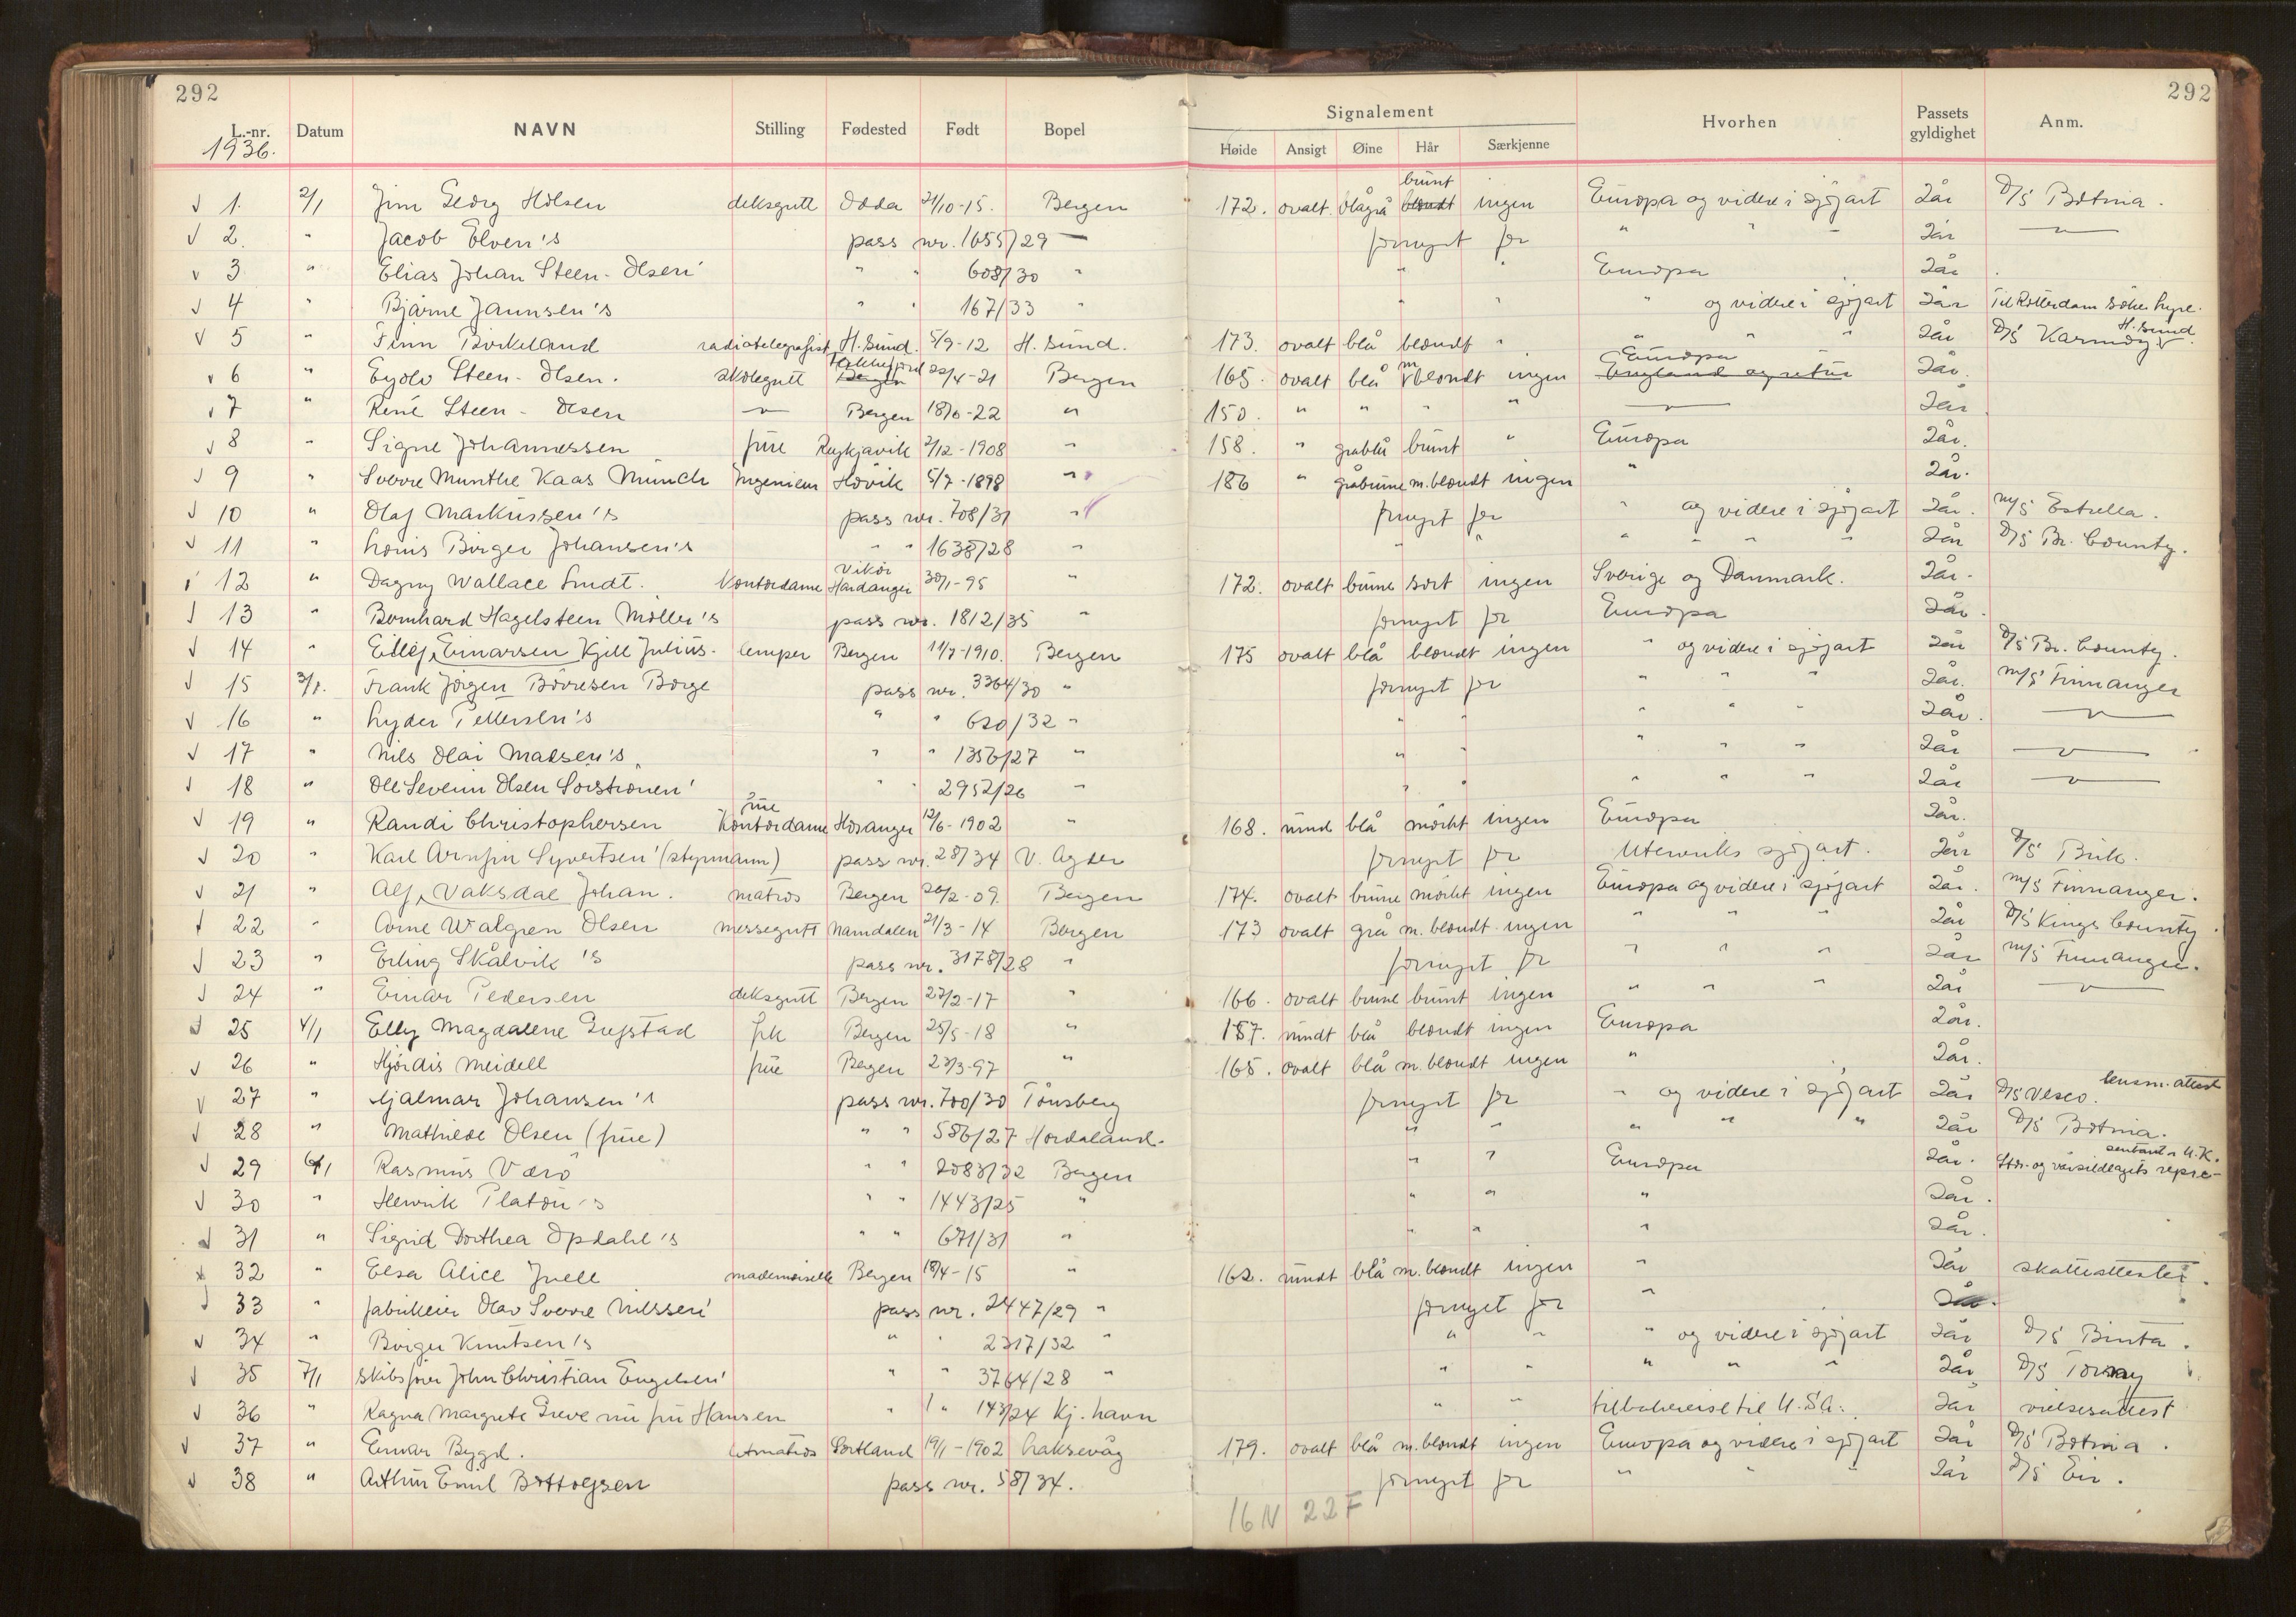 292 292
L.-nr. Datum NAVN Stilling Fødested Født Bopel Signalement Hvorhen Passets gyldighet Anm.
1936. Høide Ansigt Øine Hår Særkjenne
1. 2/1 Jim Georg Holsen deksgutt Odda 21/10-15. Bergen 172. ovalt blågrå blondt brunt ingen Europa og videre i sjöfart 2år D/S Botnia.
2. " Jacob Elven's pass nr. 1655/29 — fornyet for " " " 2år —"—
3 " Elias Johan Steen-Olsen' " " 608/30 " " " Europa 2år
4 " Bjarne Jannsen's " " 167/33 " " " " og videre i sjöfart 2år Til Rotterdam söke hyre.
5 " Finn Birkeland radiotelegrafist H.sund. 5/9-12 H.sund. 173. ovalt blå blondt " " " " 2år D/S Karmöy H.sund.
6 " Eyolv Steen-Olsen. skolegutt Bergen Flekkefjord 22/4-21 Bergen 165. ovalt blå m blondt ingen England og retur Europa 2år.
7 " René Steen-Olsen —"— Bergen 18/6-22 " 150. " " " " —"— 2år
8 " Signe Johannessen frue Reykjavik 2/12-1908 " 158. " gråblå brunt " Europa 2år.
9 " Sverre Munthe Kaas Munch Ingeniør Hövik 5/7-1898 " 186 " gråbrune m.blondt ingen " 2år.
10 " Olaf Markussen's pass nr. 708/31 " fornyet for " og videre i sjöfart 2år. M/S Estrella.
11 " Louis Birger Johansen's " " 1638/28 " " " " " " " 2år D/S Br. County.
12 " Dagny Wallace Smidt. Kontordame Vikör Hardanger 30/1-95 " 172. ovalt brune sort ingen Sverige og Danmark. 2år.
13 " Bernhard Hagelsteen Möller's pass nr. 1812/35 " fornyet for Europa 2år.
14 " Eilif, Einarsen Kjell Julius. lemper Bergen 11/7-1910. Bergen 175 ovalt blå blondt ingen " og videre i sjöfart 2år D/S Br. County.
15 3/1. Frank Jörgen Börresen Borge pass nr. 3364/30 " fornyet for " " " 2år. M/S Finnanger
16 " Lyder Pettersen's " " 620/32 " " " " " " 2år. —"—
17 " Nils Olai Madsen's " " 1356/27 " " " " " " 2år —"—
18 " Ole Severin Olsen Sörströnen' " " 2952/26 " " " " " " 2år —"—
19 " Randi Christophersen Kontordame frue Hosanger 12/6-1902 " 168. rund blå mörkt ingen Europa 2år.
20 " Karl Arnfin Syvertsen' (styrmann) pass nr. 28/34 V. Agder fornyet for Utenriks sjöfart. 2år D/S Brik.
21 " Alf, Vaksdal Johan. matros Bergen 26/2-09. Bergen 174. ovalt brune mörkt ingen Europa og videre i sjöfart 2år. M/S Finnanger.
22 " Arne Walgren Olsen messegutt Namdalen 21/3-14 Bergen 173 ovalt grå m.blondt ingen " " " 2år D/S Kings County.
23 " Erling Skålvik's pass nr. 3178/28 " fornyet for " " " 2år M/S Finnanger.
24 " Einar Pedersen deksgutt Bergen 27/2-17 " 166. ovalt brune brunt ingen " " " 2år —"—
25 4/1 Elly Magdalene frk Bergen 25/5-18 " 157. rundt blå blondt ingen Europa 2år.
26 " Hjördis Meidell frue Bergen 23/3-97 " 165. ovalt blå m.blondt ingen " 2år.
27 " Hjalmar Johansen's pass nr. 700/30 Tönsberg fornyet for " og videre i sjöfart 2år D/S Vesco. lensm.attest
28 " Mathilde Olsen (frue) " " 586/27 Hordaland. " " " " " 2år D/S Botnia.
29 6/1 Rasmus Værö " " 2083/32 Bergen " " Europa 2år. Stor- og vårsildlagets representant i U.K.
30 " Henrik Platou's " " 1443/25 " " " " 2år.
31 " Sigrid Dorthea Opdahl's " " 671/31 " " " " 2år.
32 " Elsa Alice Juell mademoiselle Bergen 18/4-15 " 162. rundt blå m.blondt ingen " 2år skatteattester.
33 " fabrikeier Olav Sverre Nilssen' pass nr. 2447/29 " fornyet for " 2år.
34 " Birger Knutsen's " " 2317/32 " " " " og videre i sjöfart 2år D/S Binta.
35 7/1 Skibsförer John Christian Engelsen' " " 3764/28 " " " " " " 2år D/S
36 " Ragna Margrete Greve nu fru Hansen " " 143/24 Kj.havn " " tilbakereise til U.S.A. 2år vielsesattest
37 " Einar Bygd. letmatros Sortland 19/1-1902 Laksevåg 179. ovalt blå m.blondt ingen Europa og videre i sjöfart 2år D/S Botnia.
38 " Arthur Emil Bottolfsen pass nr. 58/34. fornyet for " " " 2år D/S Eir.
16 N 22 F